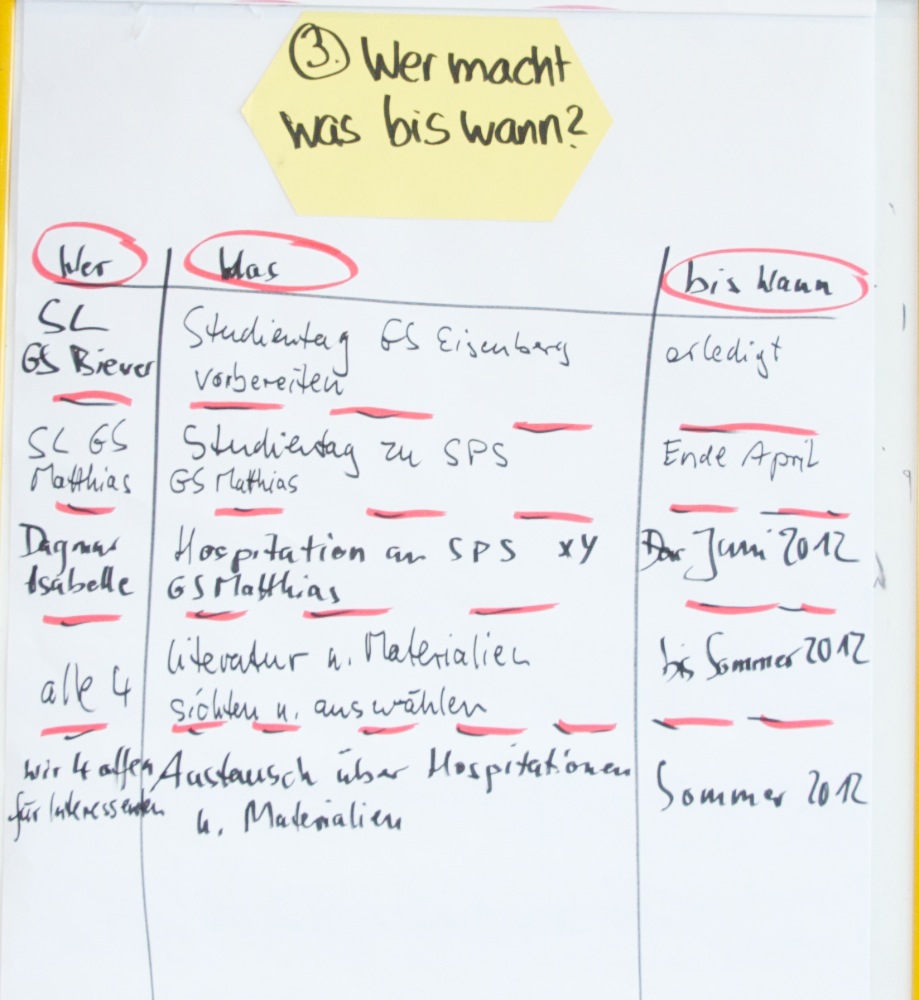 3. Wer macht
was bis wann?
Wer Was bis Wann
SL
GS Biever
Studientag GS Eisenberg
vorbereiten
erledigt
SL GS
Matthias
Studientag zu SPS
GS Mathias
Ende April
Dagmar
Isabelle
Hospitation an SPS xy
GS Matthias
Juni 2012
alle 4
Literatur u. Materialien
sichten u. auswählen
bis Sommer 2012
wir 4 offen
für Interessenten
Austausch über Hospitationen
u. Materialien
Sommer 2012